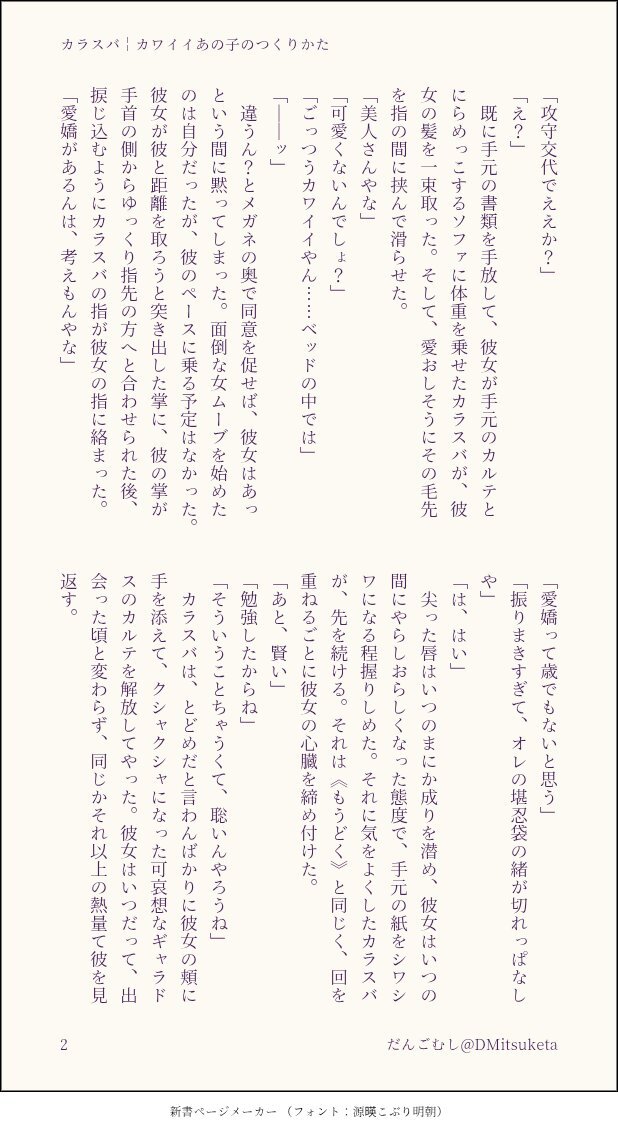 カラスバ¦カワイイあの子のつくりかた
「攻守交代でええか？」
「え？」
　既に手元の書類を手放して、彼女が手元のカルテと
にらめっこするソファに体重を乗せたカラスバが、彼
女の髪を一束取った。そして、愛おしそうにその毛先
を指の間に挟んで滑らせた。
「美人さんやな」
「可愛くないんでしょ？」
「ごっつうカワイイやん……ベッドの中では」
「――ッ」
　違うん？とメガネの奥で同意を促せば、彼女はあっ
という間に黙ってしまった。面倒な女ムーブを始めた
のは自分だったが、彼のペースに乗る予定はなかった。
彼女が彼と距離を取ろうと突き出した掌に、彼の掌が
手首の側からゆっくり指先の方へと合わせられた後、
捩じ込むようにカラスバの指が彼女の指に絡まった。
「愛嬌があるんは、考えもんやな」
「愛嬌って歳でもないと思う」
「振りまきすぎて、オレの堪忍袋の緒が切れっぱなし
や」
「は、はい」
　尖った唇はいつのまにか成りを潜め、彼女はいつの
間にやらしおらしくなった態度で、手元の紙をシワシ
ワになる程握りしめた。それに気をよくしたカラスバ
が、先を続ける。それは《もうどく》と同じく、回を
重ねるごとに彼女の心臓を締め付けた。
「あと、賢い」
「勉強したからね」
「そういうことちゃうくて、聡いんやろうね」
　カラスバは、とどめだと言わんばかりに彼女の頬に
手を添えて、クシャクシャになった可哀想なギャラド
スのカルテを解放してやった。彼女はいつだって、出
会った頃と変わらず、同じかそれ以上の熱量て彼を見
返す。
2
だんごむし@DMitsuketa
新書ページメーカー（フォント：源暎こぶり明朝）